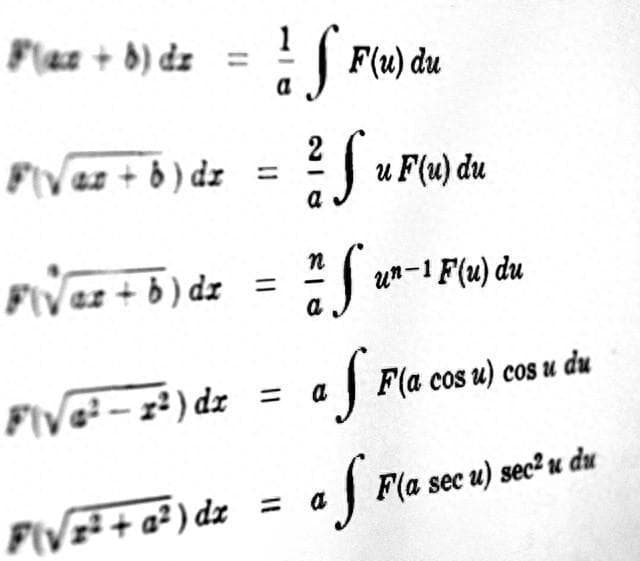 F(ax + b) dx = 1/a ∫ F(u) du
F(√(ax + b)) dx = 2/a ∫ u F(u) du
F(ⁿ√(ax + b)) dx = n/a ∫ uⁿ⁻¹ F(u) du
F(√(a² − x²)) dx = a ∫ F(a cos u) cos u du
F(√(x² + a²)) dx = a ∫ F(a sec u) sec² u du